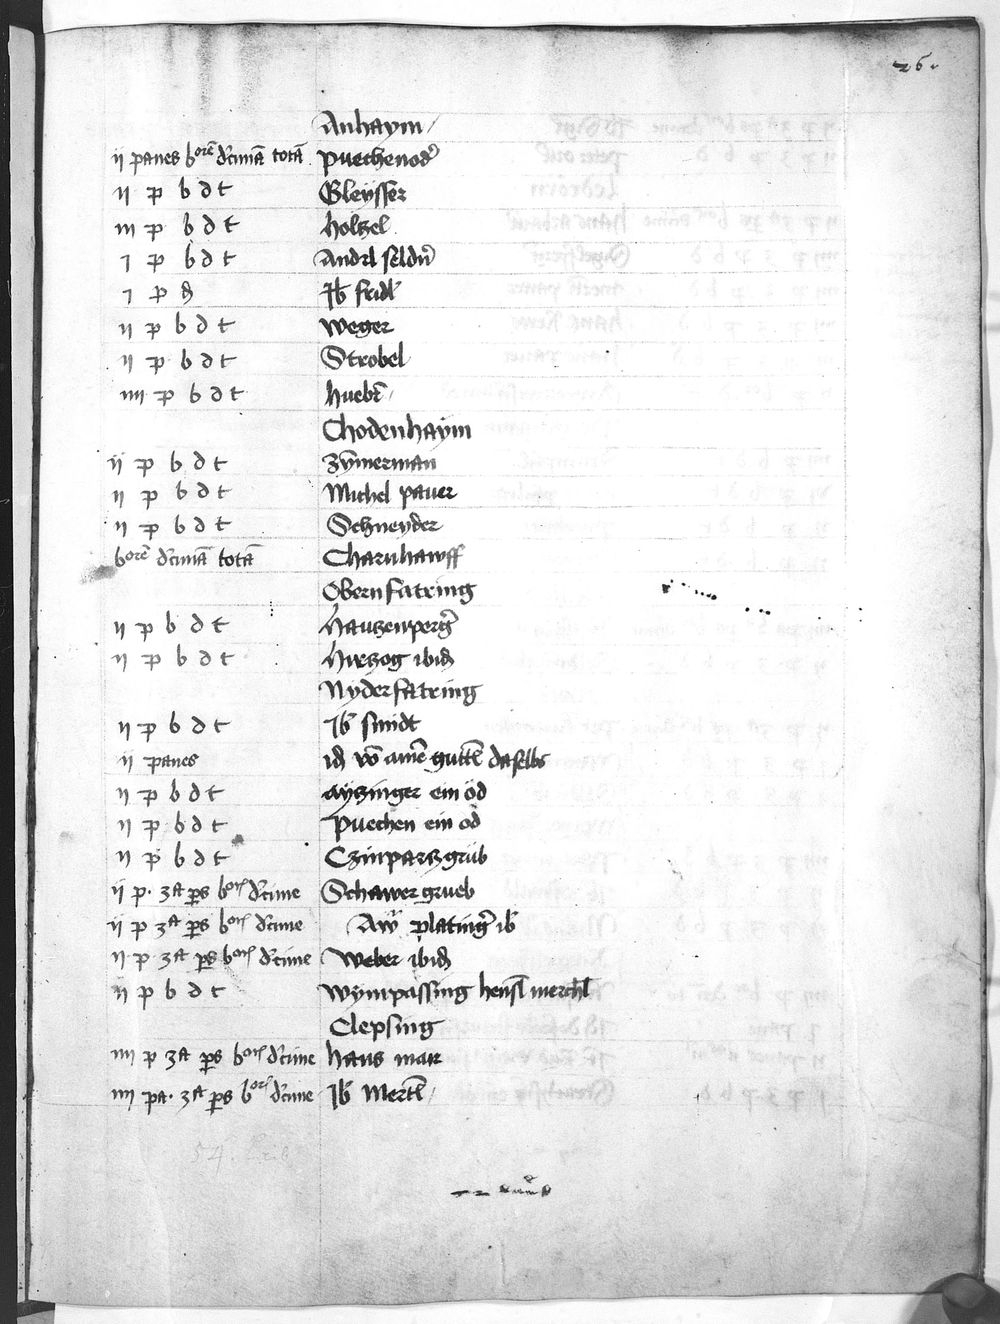 26.
Anhaym
ij panes bore dcimā totā puechenod'
ij p b d t Gleysser
iij p b d t holtzel
j p b d t Andrl seldn'
j p d Jb fridl
ij p b d t weger
ij p b d t Strobel
iiij p b d t hueb'
Chodenhaym
ij p b d t zymerman
ij p b d t Michel paver
ij p b d t Schneyder
bore dcimā totā Charnhawff
Obernfatring
ij p b d t Hauzenperg'
ij p b d t Hirzog ibid
Nyderfatring
ij p b d t Jb smidt
ij panes id vo ainē guttē daselbs
ij p b d t ayzinger ein öd
ij p b d t puechen ein öd
ij p b d t Czinparzgrub
ij p. 3a ps bors dcime Schawergrueb
ij p 3a ps bors dcime Aw plating' ib
ij p 3a ps bors dcime weber ibid
ij p b d t wympassing hensl
Clepsing
iiij p 3a ps bors dcime hans mair
iiij pa. 3a ps bors dcime Jb Mertl